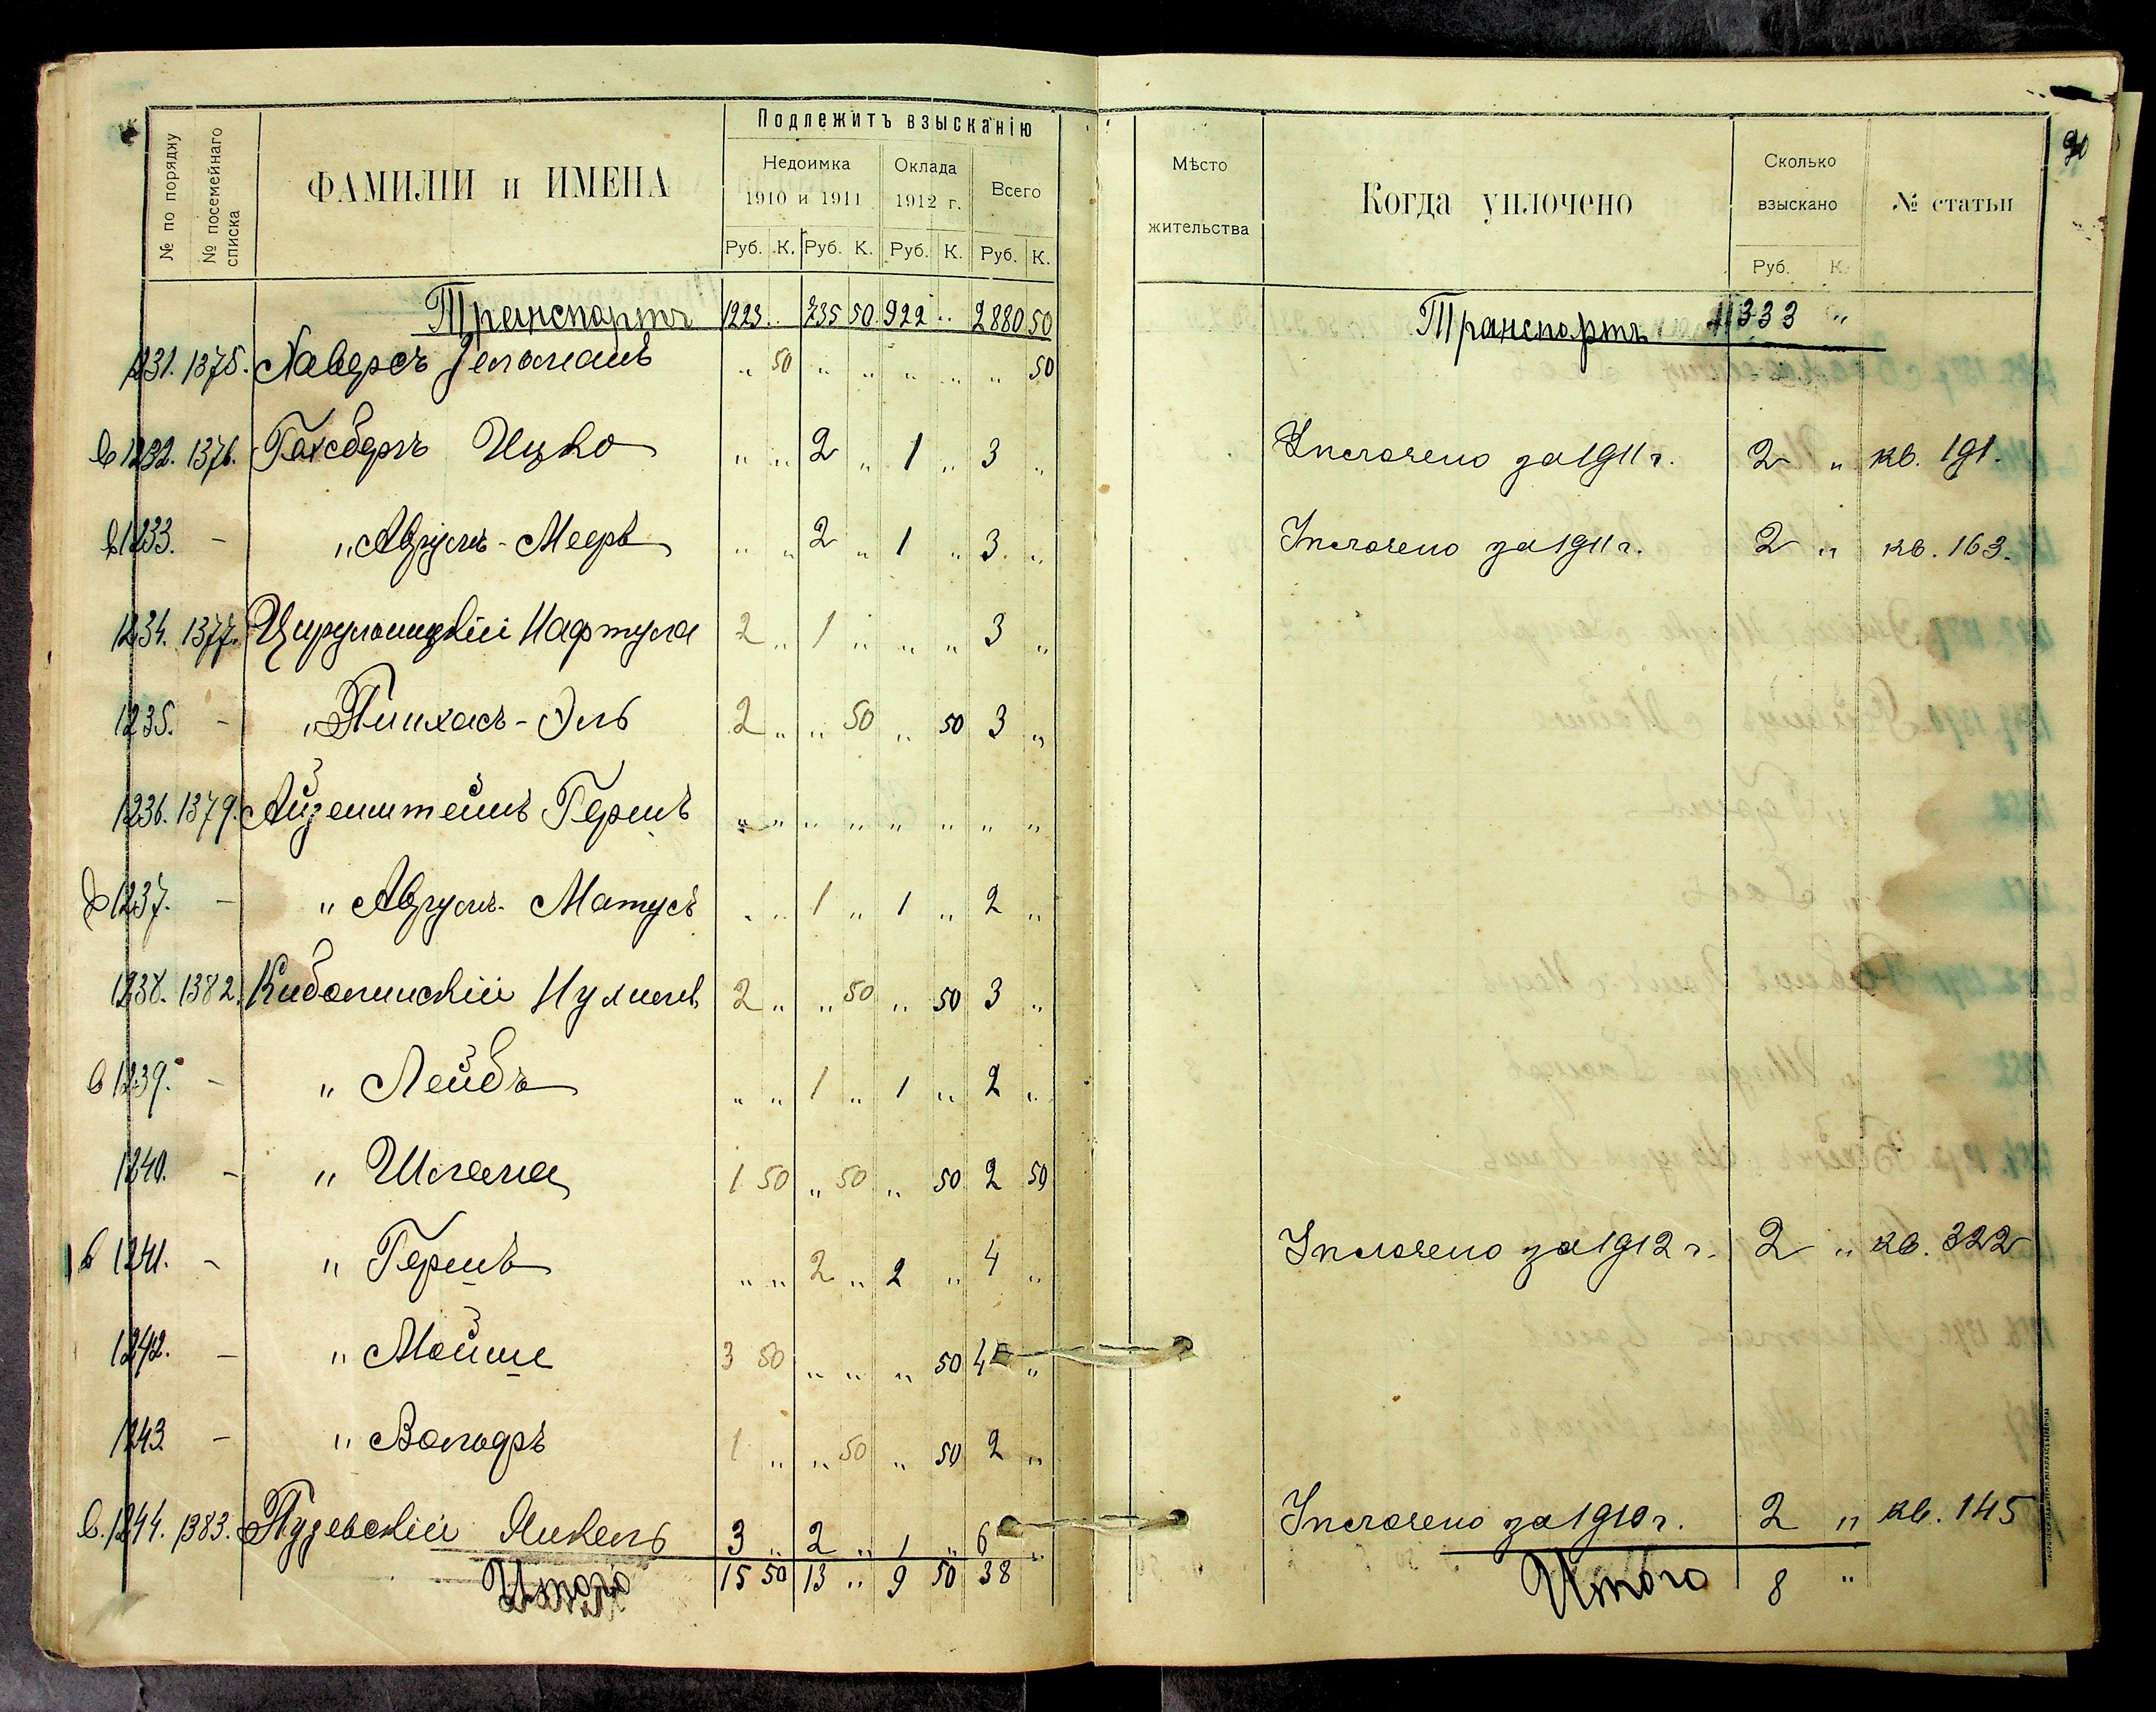 Подлежитъ взысканію
№ по порядку
№ посемейнаго списка
ФАМИЛІИ и ИМЕНА
Недоимка 1910 и 1911
Оклада 1912 г.
Всего
Руб. К. Руб. К. Руб. К. Руб. К.
Мѣсто жительства
Когда уплочено
Сколько взыскано
Руб. К.
№ статьи
90
Транспортъ 1223 „ 735 50 922 „ 2880 50 Транспортъ 1333 „
1231. 1375. „ 50 „ „ „ „ „ 50
1232. 1376. Гохбергъ Ицко „ „ 2 „ 1 „ 3 „ Уплочено за 1911 г. 2 „ кв. 191.
1233. - „ Аврумъ-Мееръ „ „ 2 „ 1 „ 3 „ Уплочено за 1911 г. 2 „ кв. 163.
1234. 1377. Цирульницкій Нафтула 2 „ 1 „ „ „ 3 „
1235. - „ Пинхасъ-Эль 2 „ „ 50 „ 50 3 „
1236. 1379. Айзенштейнъ Гершъ „ „ „ „ „ „ „ „
1237. - „ Аврумъ-Матусъ „ „ 1 „ 1 „ 2 „
1238. 1382. 2 „ „ 50 „ 50 3 „
1239. - „ Лейбъ „ „ 1 „ 1 „ 2 „
1240. - „ Шлема 1 50 „ 50 „ 50 2 50
1241. - „ Гершъ „ „ 2 „ 2 „ 4 „ Уплочено за 1912 г. 2 „ кв. 322
1242. - „ Мойше 3 50 „ „ „ 50 4 „
1243. - „ Вольфъ 1 „ „ 50 „ 50 2 „
1244. 1383. Пузевскій Янкель 3 „ 2 „ 1 „ 6 „ Уплочено за 1910 г. 2 „ кв. 145
Итого 15 50 13 „ 9 50 38 Итого 8 „